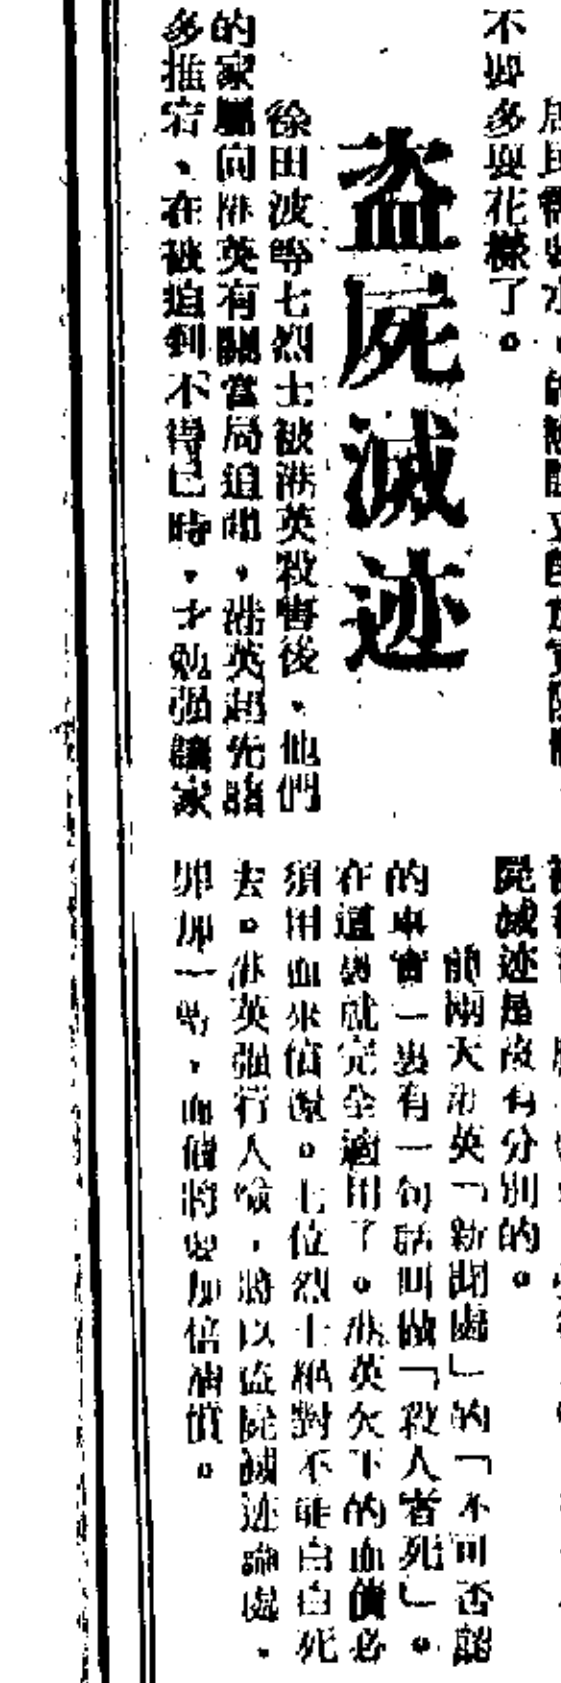 不卽多耍花樣了。
盜屍滅迹
徐田波等七烈士被港英殺害後，他們
的家屬向港英有關當局追問，港英起先諸
多推宕、在被迫到不得已時，才勉强讓家
屍滅迹是沒有分別的。
前兩天港英「新聞處」的「不可否認
的事實」裏有一句話叫做「殺人者死」。
在這裏就完全適用了。港英欠下的血債必
須用血來償還。七位烈士絕對不能白白死
去。港英强行人殮，將以盜屍滅迹論處，
罪加一等，血債將要加倍淸償。